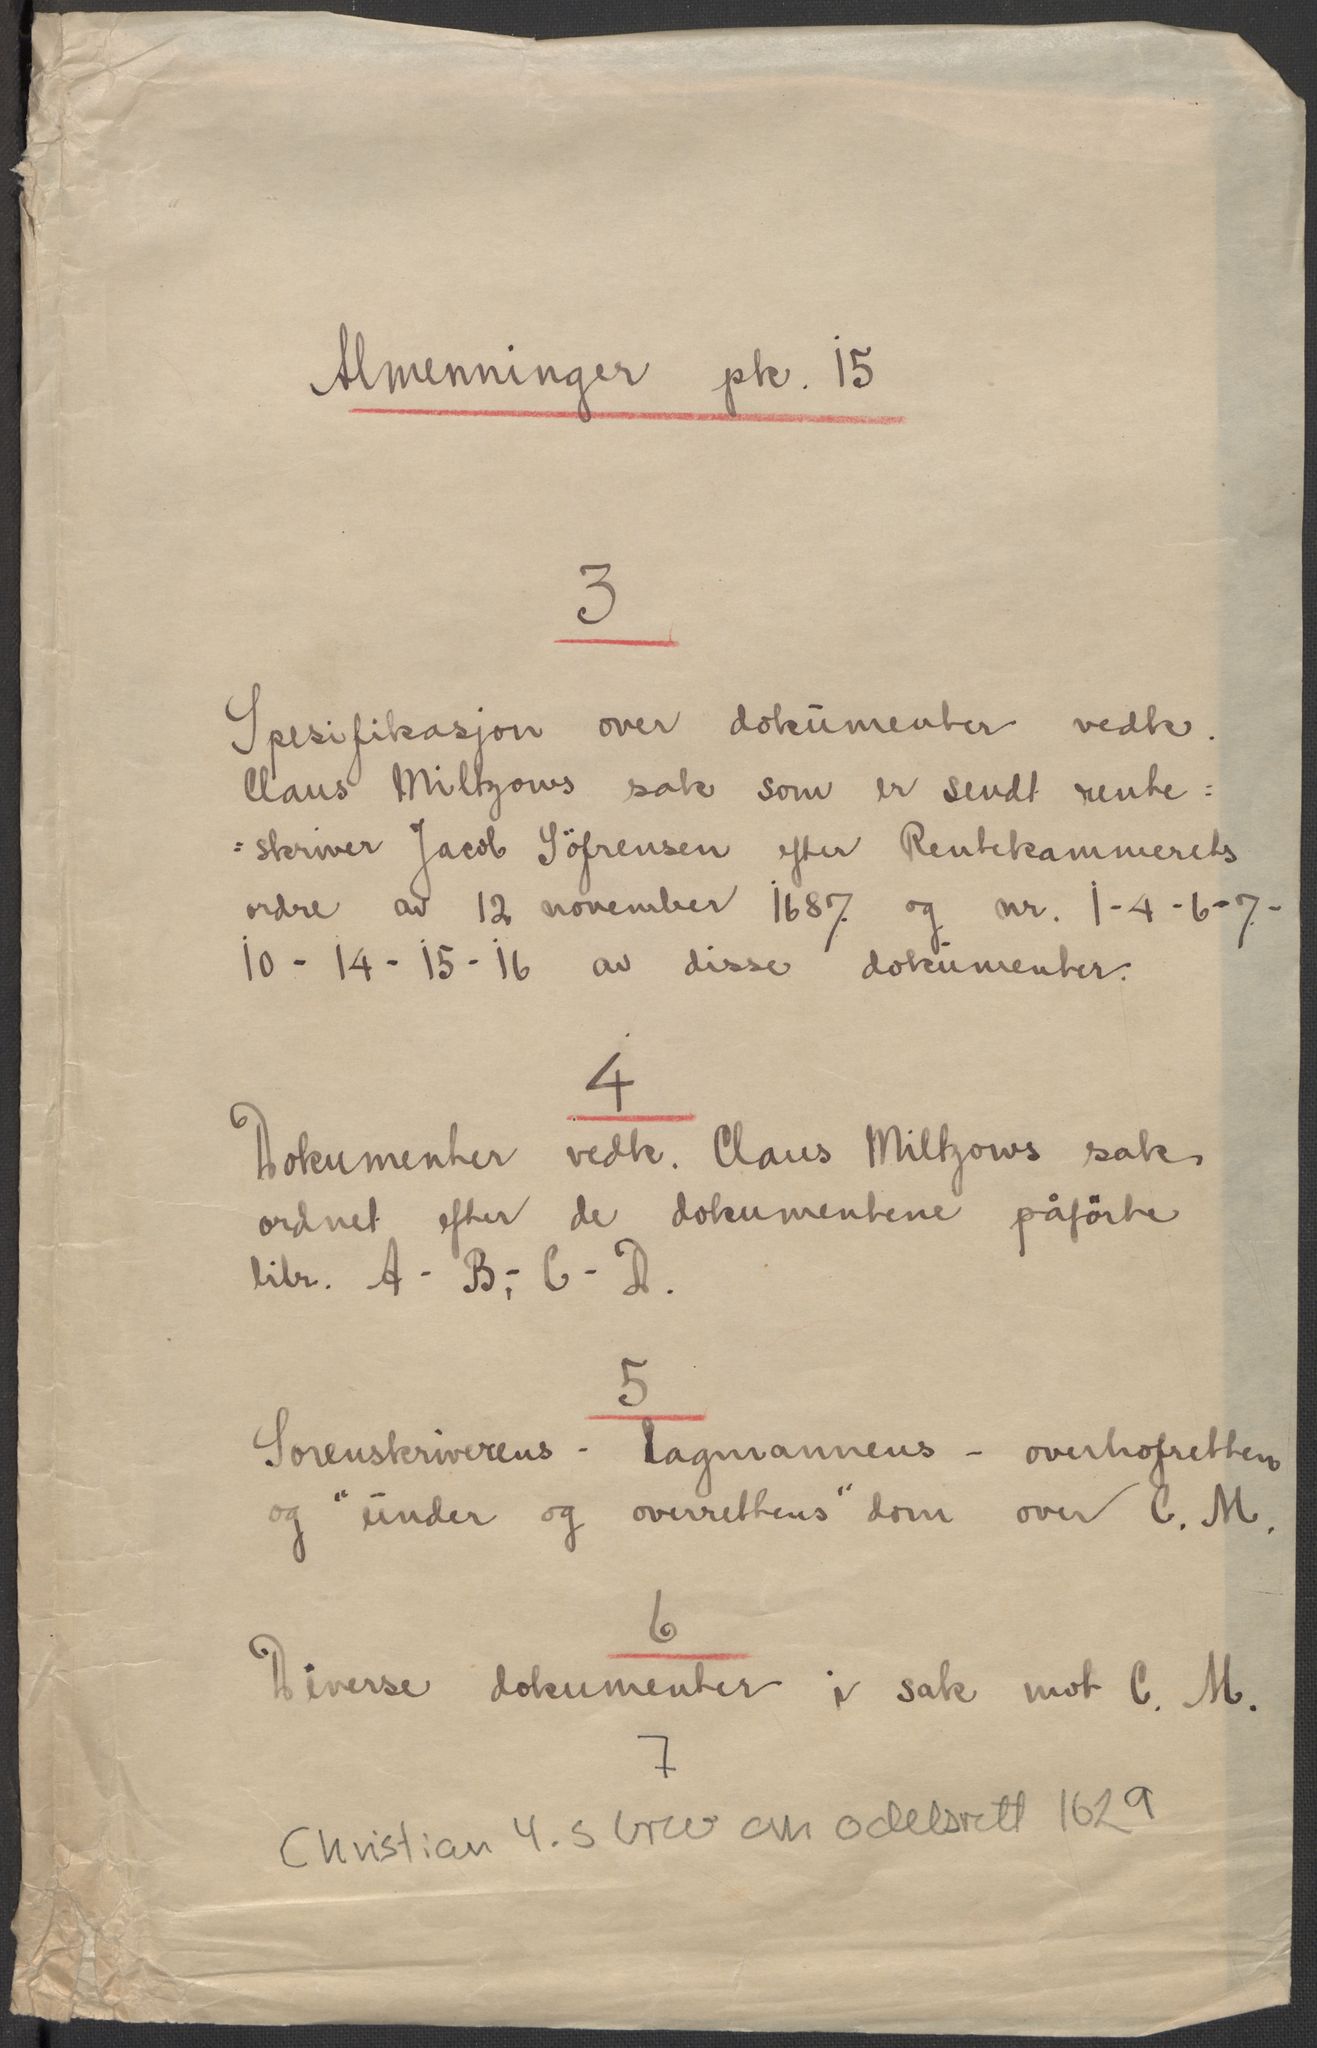 Almenninger pk. 15
3
Spesifikasjon over dokūmenter vedk.
Claus Miltzows sak som er sendt rente=
=skriver Jacob Söfrensen efter Rentekammerets
ordre av 12 november 1687 og nr. 1-4-6-7-
10-14-15-16 av disse dokūmenter.
4
Dokumenter vedk. Claus Miltzows sak
ordnet efter de dokumentene påförte
litr. A - B,- C - D.
5
Sorenskriverens - lagmannens - overhofretten
og "ūnder og overrettens" dom over C. M.
6
Diverse dokumenter i sak mot C. M.
7
Christian 4.s brev om odelsrett 1629